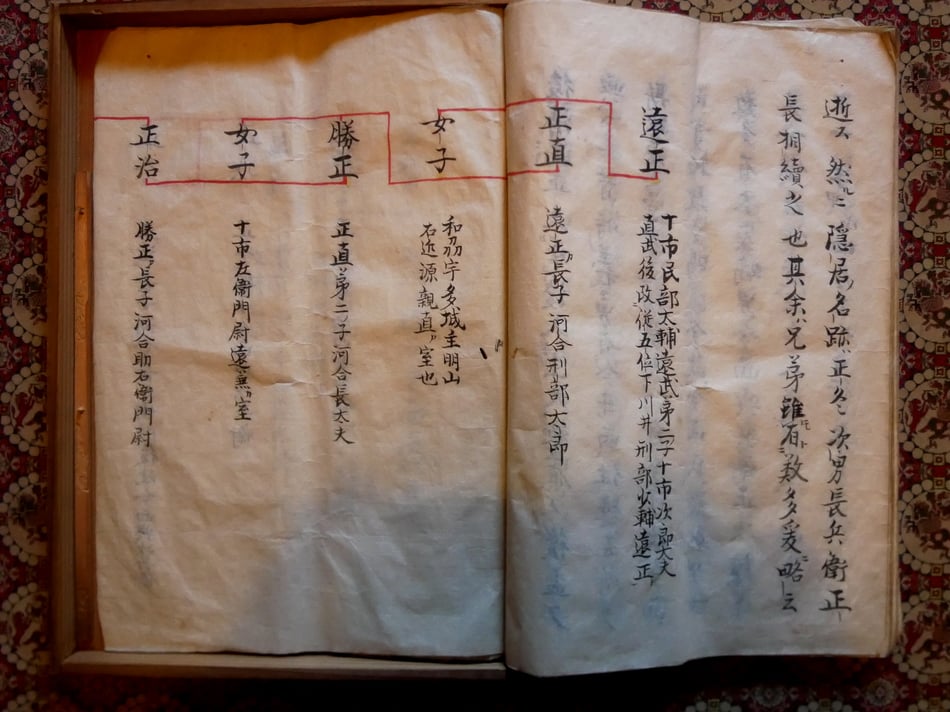 逝ス然ルニ隠居ノ名跡ハ正冬次男長兵衛正
長相續之也其余ハ兄弟雖有数多爰ニ略云
遠正
十市民部太輔遠武第二ノ子十市次郎太夫
直武後改従五位下川井刑部少輔遠正
正直
遠正ノ長子河合刑部太郎
女子
和刕宇多城主明山
右近源親直ノ室也
勝正
正直第二ノ子河合長太夫
女子
十市左衛門尉遠無ノ室
正治
勝正ノ長子河合助右衛門尉